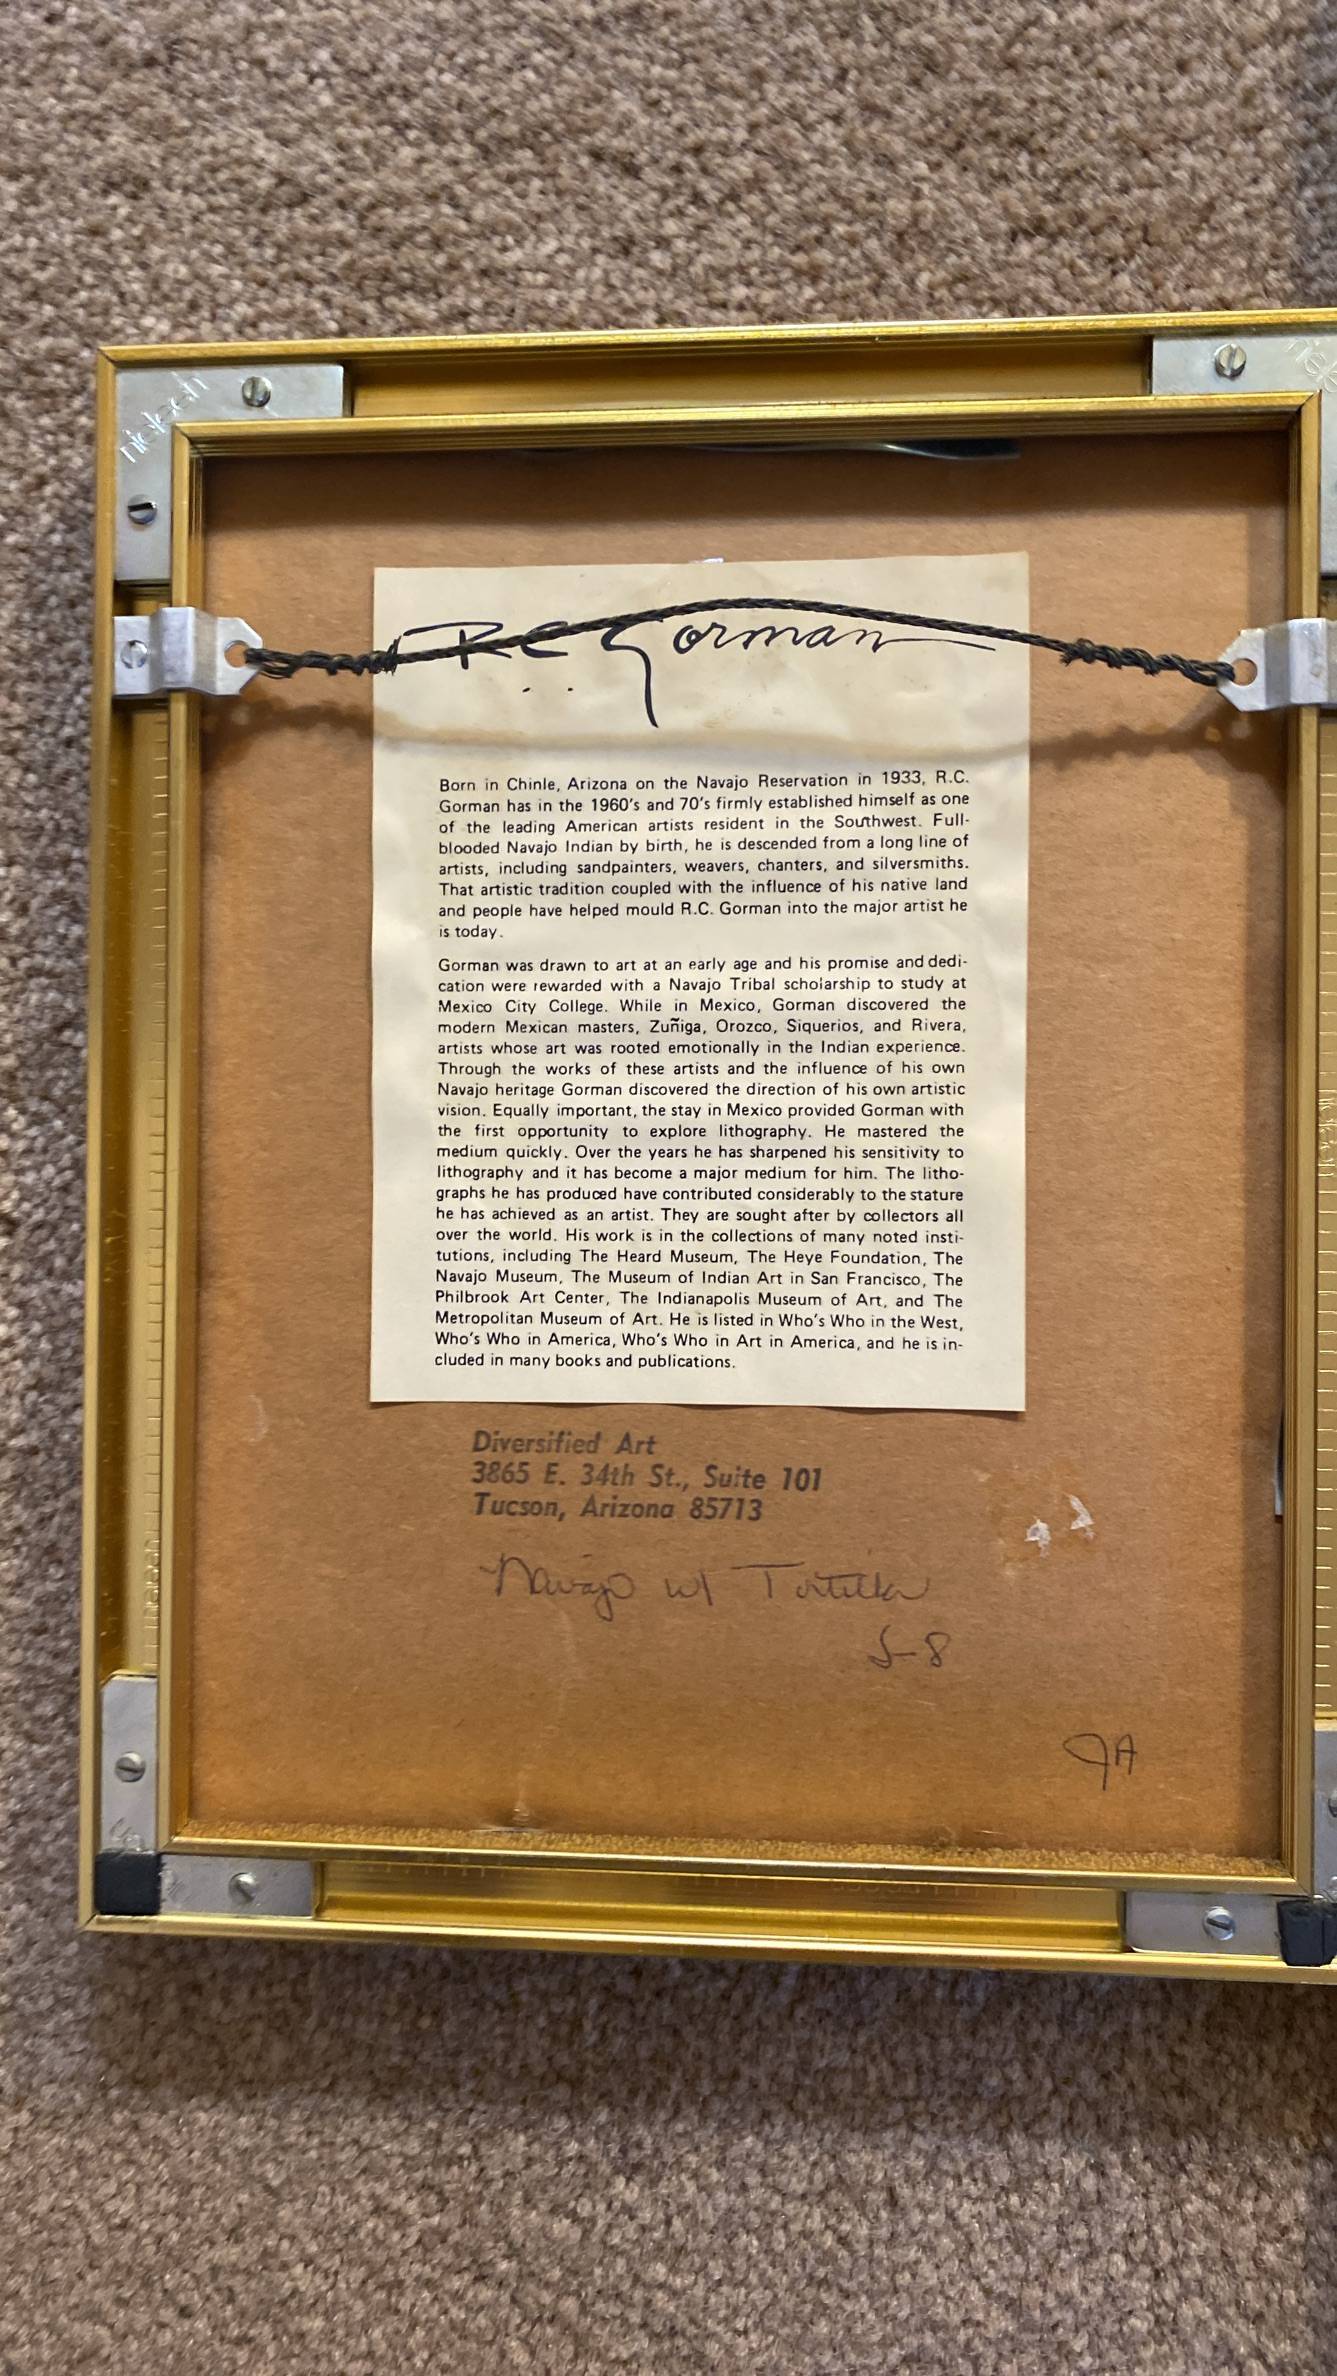 nielsen
R.C. Gorman
Born in Chinle, Arizona on the Navajo Reservation in 1933, R.C.
Gorman has in the 1960's and 70's firmly established himself as one
of the leading American artists resident in the Southwest. Full-
blooded Navajo Indian by birth, he is descended from a long line of
artists, including sandpainters, weavers, chanters, and silversmiths.
That artistic tradition coupled with the influence of his native land
and people have helped mould R.C. Gorman into the major artist he
is today.
Gorman was drawn to art at an early age and his promise and dedi-
cation were rewarded with a Navajo Tribal scholarship to study at
Mexico City College. While in Mexico, Gorman discovered the
modern Mexican masters, Zuñiga, Orozco, Siquerios, and Rivera,
artists whose art was rooted emotionally in the Indian experience.
Through the works of these artists and the influence of his own
Navajo heritage Gorman discovered the direction of his own artistic
vision. Equally important, the stay in Mexico provided Gorman with
the first opportunity to explore lithography. He mastered the
medium quickly. Over the years he has sharpened his sensitivity to
lithography and it has become a major medium for him. The litho-
graphs he has produced have contributed considerably to the stature
he has achieved as an artist. They are sought after by collectors all
over the world. His work is in the collections of many noted insti-
tutions, including The Heard Museum, The Heye Foundation, The
Navajo Museum, The Museum of Indian Art in San Francisco, The
Philbrook Art Center, The Indianapolis Museum of Art, and The
Metropolitan Museum of Art. He is listed in Who's Who in the West,
Who's Who in America, Who's Who in Art in America, and he is in-
cluded in many books and publications.
Diversified Art
3865 E. 34th St., Suite 101
Tucson, Arizona 85713
Navajo w/ Tortilla
S-8
JA